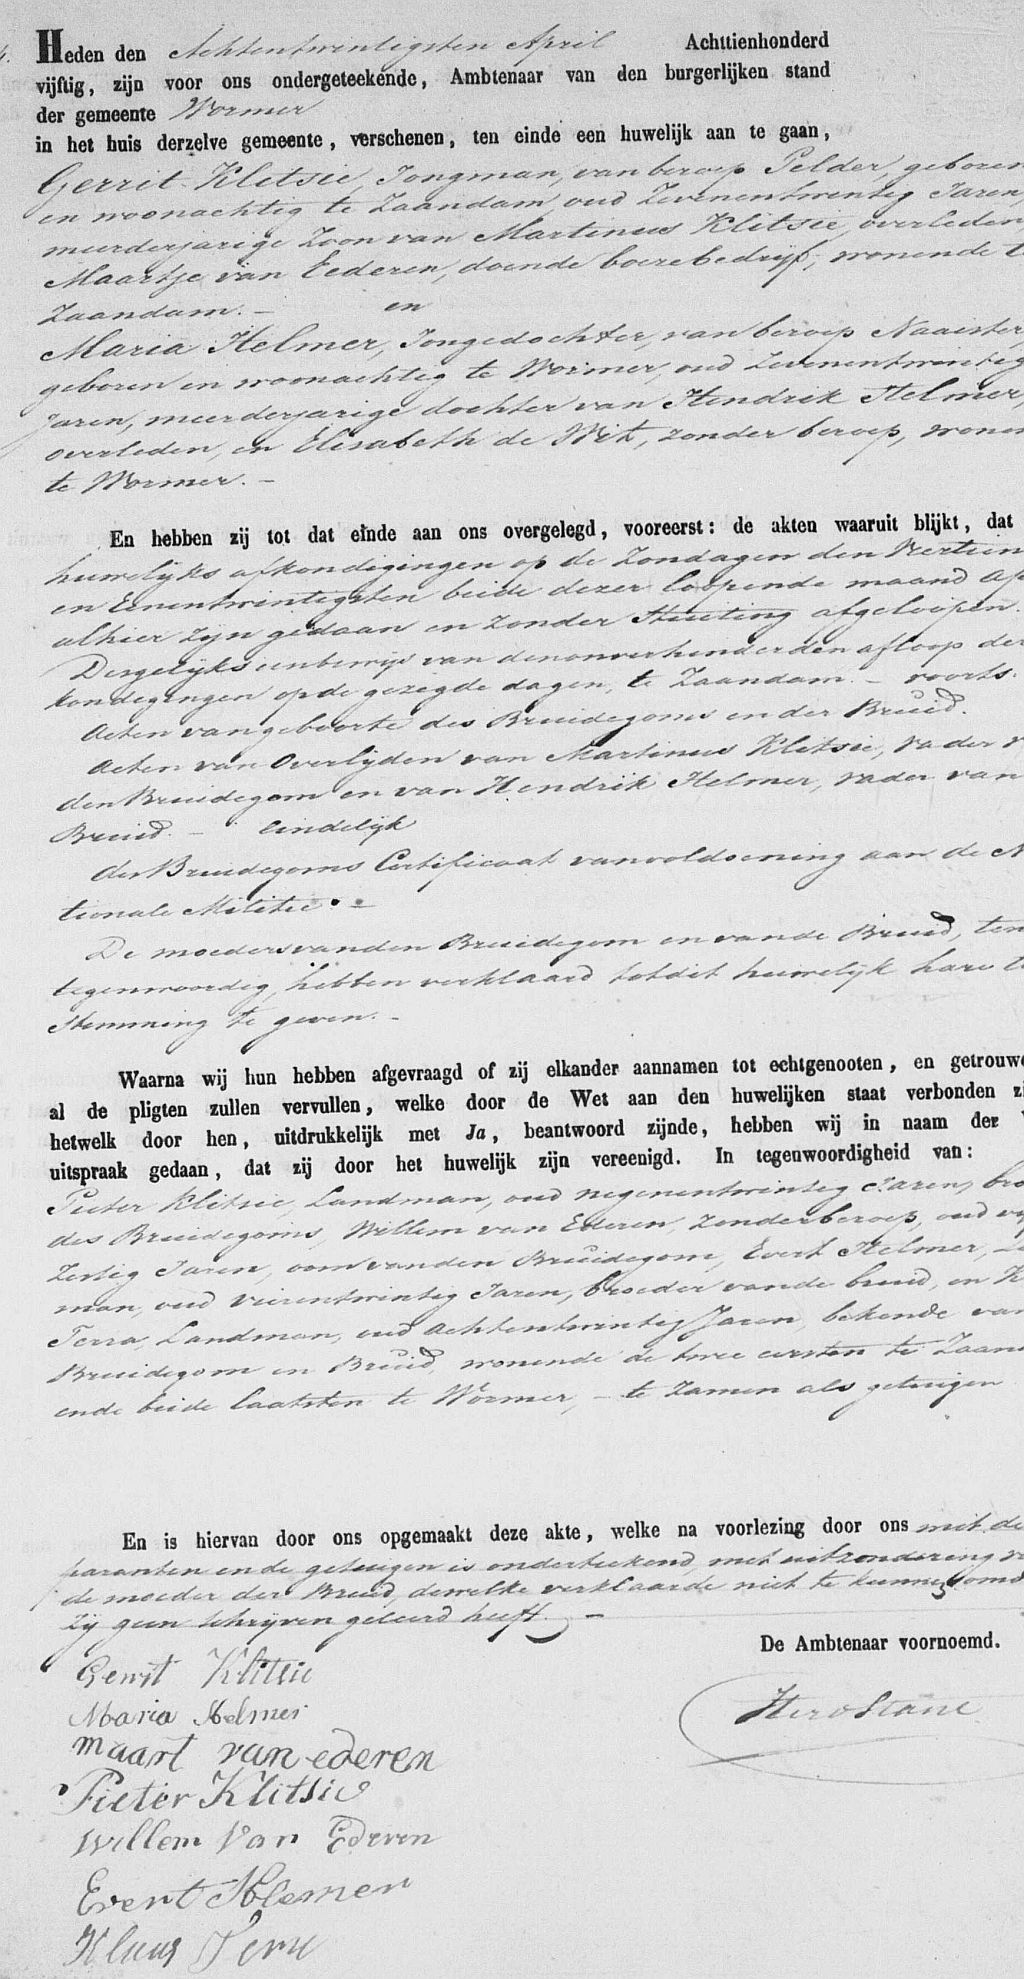 Heden den Achtentwintigsten April Achttienhonderd
vijftig, zijn voor ons ondergeteekende, Ambtenaar van den burgerlijken stand
der gemeente Wormer
in het huis derzelve gemeente, verschenen, ten einde een huwelijk aan te gaan,
Gerrit Klitsie, Jongman, van beroep Pelder, geboren
en woonachtig te Zaandam, oud Zevenentwintig Jaren,
meerderjarige Zoon van Martinus Klitsie, overleden,
Maartje van Eederen, doende boerebedrijf, wonende te
Zaandam. — en
Maria Helmer, Jongedochter, van beroep Naaister,
geboren en woonachtig te Wormer, oud Zevenentwintig
Jaren, meerderjarige dochter van Hendrik Helmer,
overleden, en Elisabeth de Wit, zonder beroep, wonen
te Wormer. —
En hebben zij tot dat einde aan ons overgelegd, vooreerst: de akten waaruit blijkt, dat
huwelijks afkondigingen op de Zondagen den Veertien
en Eenentwintigsten beide dezer loopende maand Ap
alhier zijn gedaan en zonder Stuiting afgeloopen.
Desgelijks een bewijs van den onverhinderden afloop der
kondigingen op de gezegde dagen, te Zaandam. — voorts.
Acten van geboorte des Bruidegoms en der Bruid.
Acten van Overlijden van Martinus Klitsie, vader v
den Bruidegom en van Hendrik Helmer, vader van
Bruid. — Eindelijk
des Bruidegoms Certificaat van voldoening aan de N
tionale Militie. —
De moeders van den Bruidegom en van de Bruid, ten
tegenwoordig, hebben verklaard tot dit huwelijk hare t
stemming te geven. —
Waarna wij hun hebben afgevraagd of zij elkander aannamen tot echtgenooten, en getrouwe
al de pligten zullen vervullen, welke door de Wet aan den huwelijken staat verbonden zi
hetwelk door hen, uitdrukkelijk met Ja, beantwoord zijnde, hebben wij in naam der
uitspraak gedaan, dat zij door het huwelijk zijn vereenigd. In tegenwoordigheid van:
Pieter Klitsie, Landman, oud negenentwintig Jaren, bro
des Bruidegoms, Willem van Ederen, zonder beroep, oud
Zestig Jaren, oom van den Bruidegom, Evert Helmer, L
man, oud vierentwintig Jaren, broeder van de bruid, en K
Terra, Landman, oud Achtentwintig Jaren, bekende van
Bruidegom en Bruid, wonende de twee eersten te Zaan
en de beide laatsten te Wormer, — te zamen als getuigen
En is hiervan door ons opgemaakt deze akte, welke na voorlezing door ons met de
paranten en de getuigen is onderteekend, met uitzondering v
de moeder der Bruid, dewelke verklaarde niet te kunnen, omd
zij geen schrijven geleerd heeft. —
De Ambtenaar voornoemd.
Gerrit Klitsie
Maria Helmer
maart van ederen
Pieter Klitsie
Willem Van Ederen
Evert Helmer
Klaas Terra